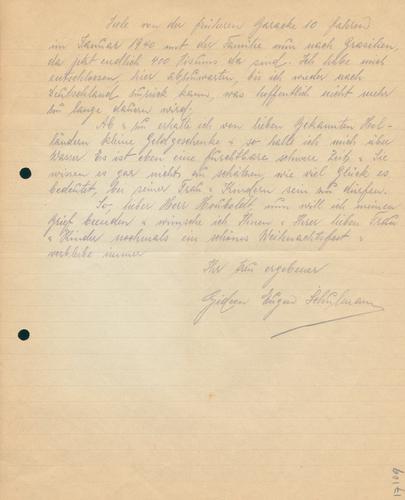 Viele von der früheren Baracke 10 fahren
im Januar 1940 mit der Familie nun nach Brasilien,
da jetzt endlich 400 Visums da sind. Ich habe mich
entschlossen, hier abzuwarten, bis ich wieder nach
Deutschland zurück kann, was hoffentlich nicht mehr
zu lange dauern wird.
Ab & zu erhalte ich von lieben Bekannten Hol-
ländern kleine Geldgeschenke & so halte ich mich über
Wasser. Es ist eben eine furchtbare schwere Zeit & Sie
wissen es gar nicht zu schätzen, wie viel Glück es
bedeutet, bei seiner Frau & Kindern sein zu dürfen.
So, lieber Herr nun will ich meinen
Brief beenden & wünsche ich Ihnen & Ihrer lieben Frau
& Kinder nochmals ein schönes Weihnachtsfest &
verbleibe immer
Ihr treu ergebener
Gideon Eugen Schulmann
17109